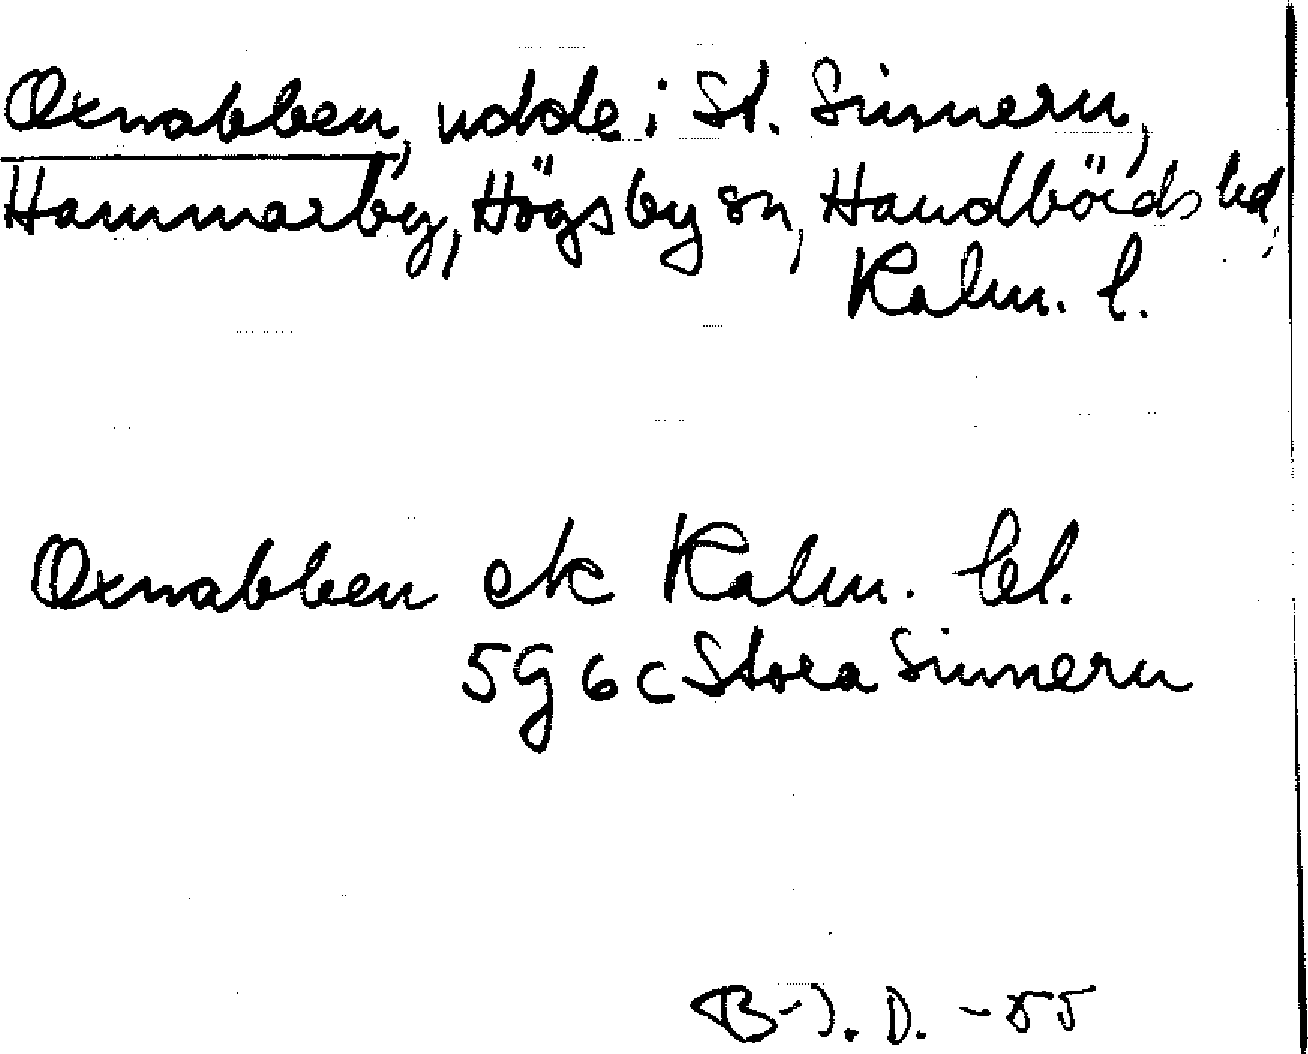 Oxnabben, udde i St. Sinnern,
Hammarby, Högsby sn, Handbörds hd,
Kalm. l.
Oxnabben ek Kalm. bl.
5G 6c Stora Sinnern
B-J. D. -55